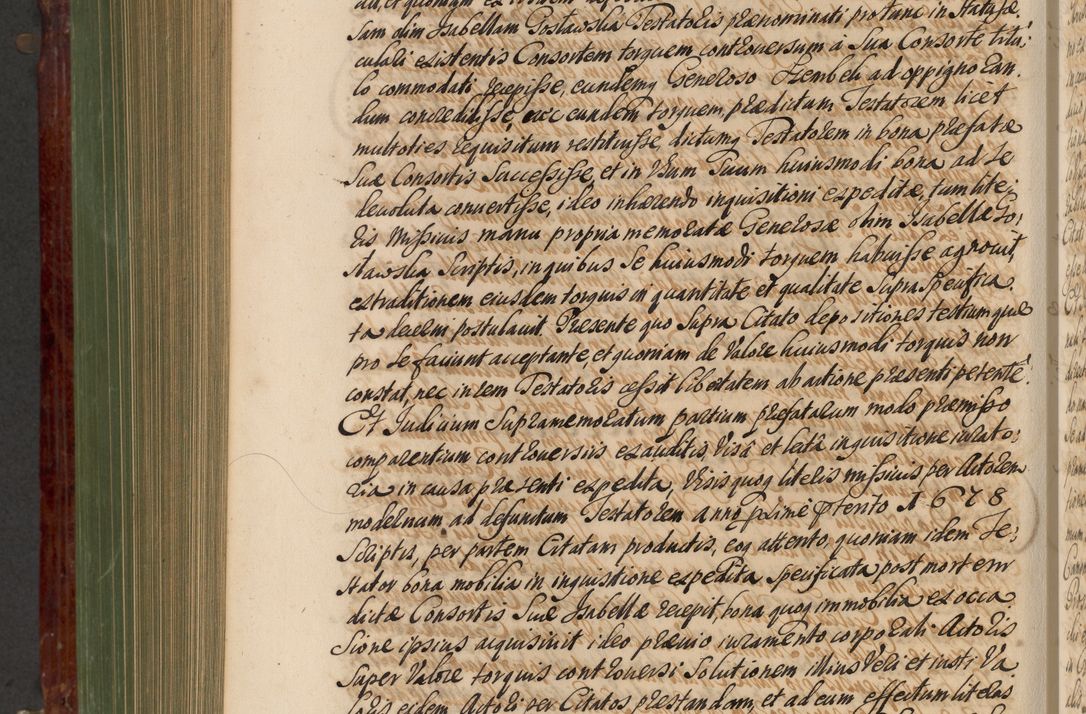 sam olim Isabellam Gosławska Testatoris prænominati pro tunc in Statu sæ-
culari existentis Consortem torquem controversum à Sua Consorte titu-
lo commodati recepisse, eundemq Generoso Szembek ad oppignoran-
dum concredidisse, nec eundem torquem prædictum Testatorem licet
multoties requisitum restituisse, dictumq Testatorem in bona præfatæ
Suæ Consortis Successisse, et in Usum Suum huiusmodi bona ad Se
devoluta convertisse, ideo inhærendo inquisitioni expeditæ, tum lite-
ris Missivis manu propria memoratæ Generosæ olim Isabellæ Go-
sławska Scriptis, in quibus Se huiusmodi torquem habuisse agnovit,
extraditionem eiusdem torquis in quantitate et qualitate Supra Specifica-
ta decerni postulavit. Præsente quo Supra Citato depositiones testium quæ
pro Se faciunt acceptante, et quoniam de Valore huiusmodi torquis non
constat, nec in rem Testatoris cessit libertatem ab actione præsenti petente.
Et Judicium Supramemoratum partium præfatarum modo præmisso
comparentium controversiis exauditis, Visa et lecta inquisitione iurato-
ria in causa præsenti expedita, Visis quoq literis missivis per Actorem
modernum ad defunctum Testatorem anno proxime præterito 1678
Scriptis, per partem Citatam productis, eoq attento, quoniam idem Te-
stator bona mobilia in inquisitione expedita Specificata post mortem
dictæ Consortis Suæ Isabellæ recepit, bona quoq immobilia ex occa-
Sione ipsius acquisivit ideo prævio iuramento corporali Actoris
Super Valore torquis controversi Solutionem illius Veri et iusti Va-
loris eidem Actori per Citatos præstandam, et ad eum effectum literas